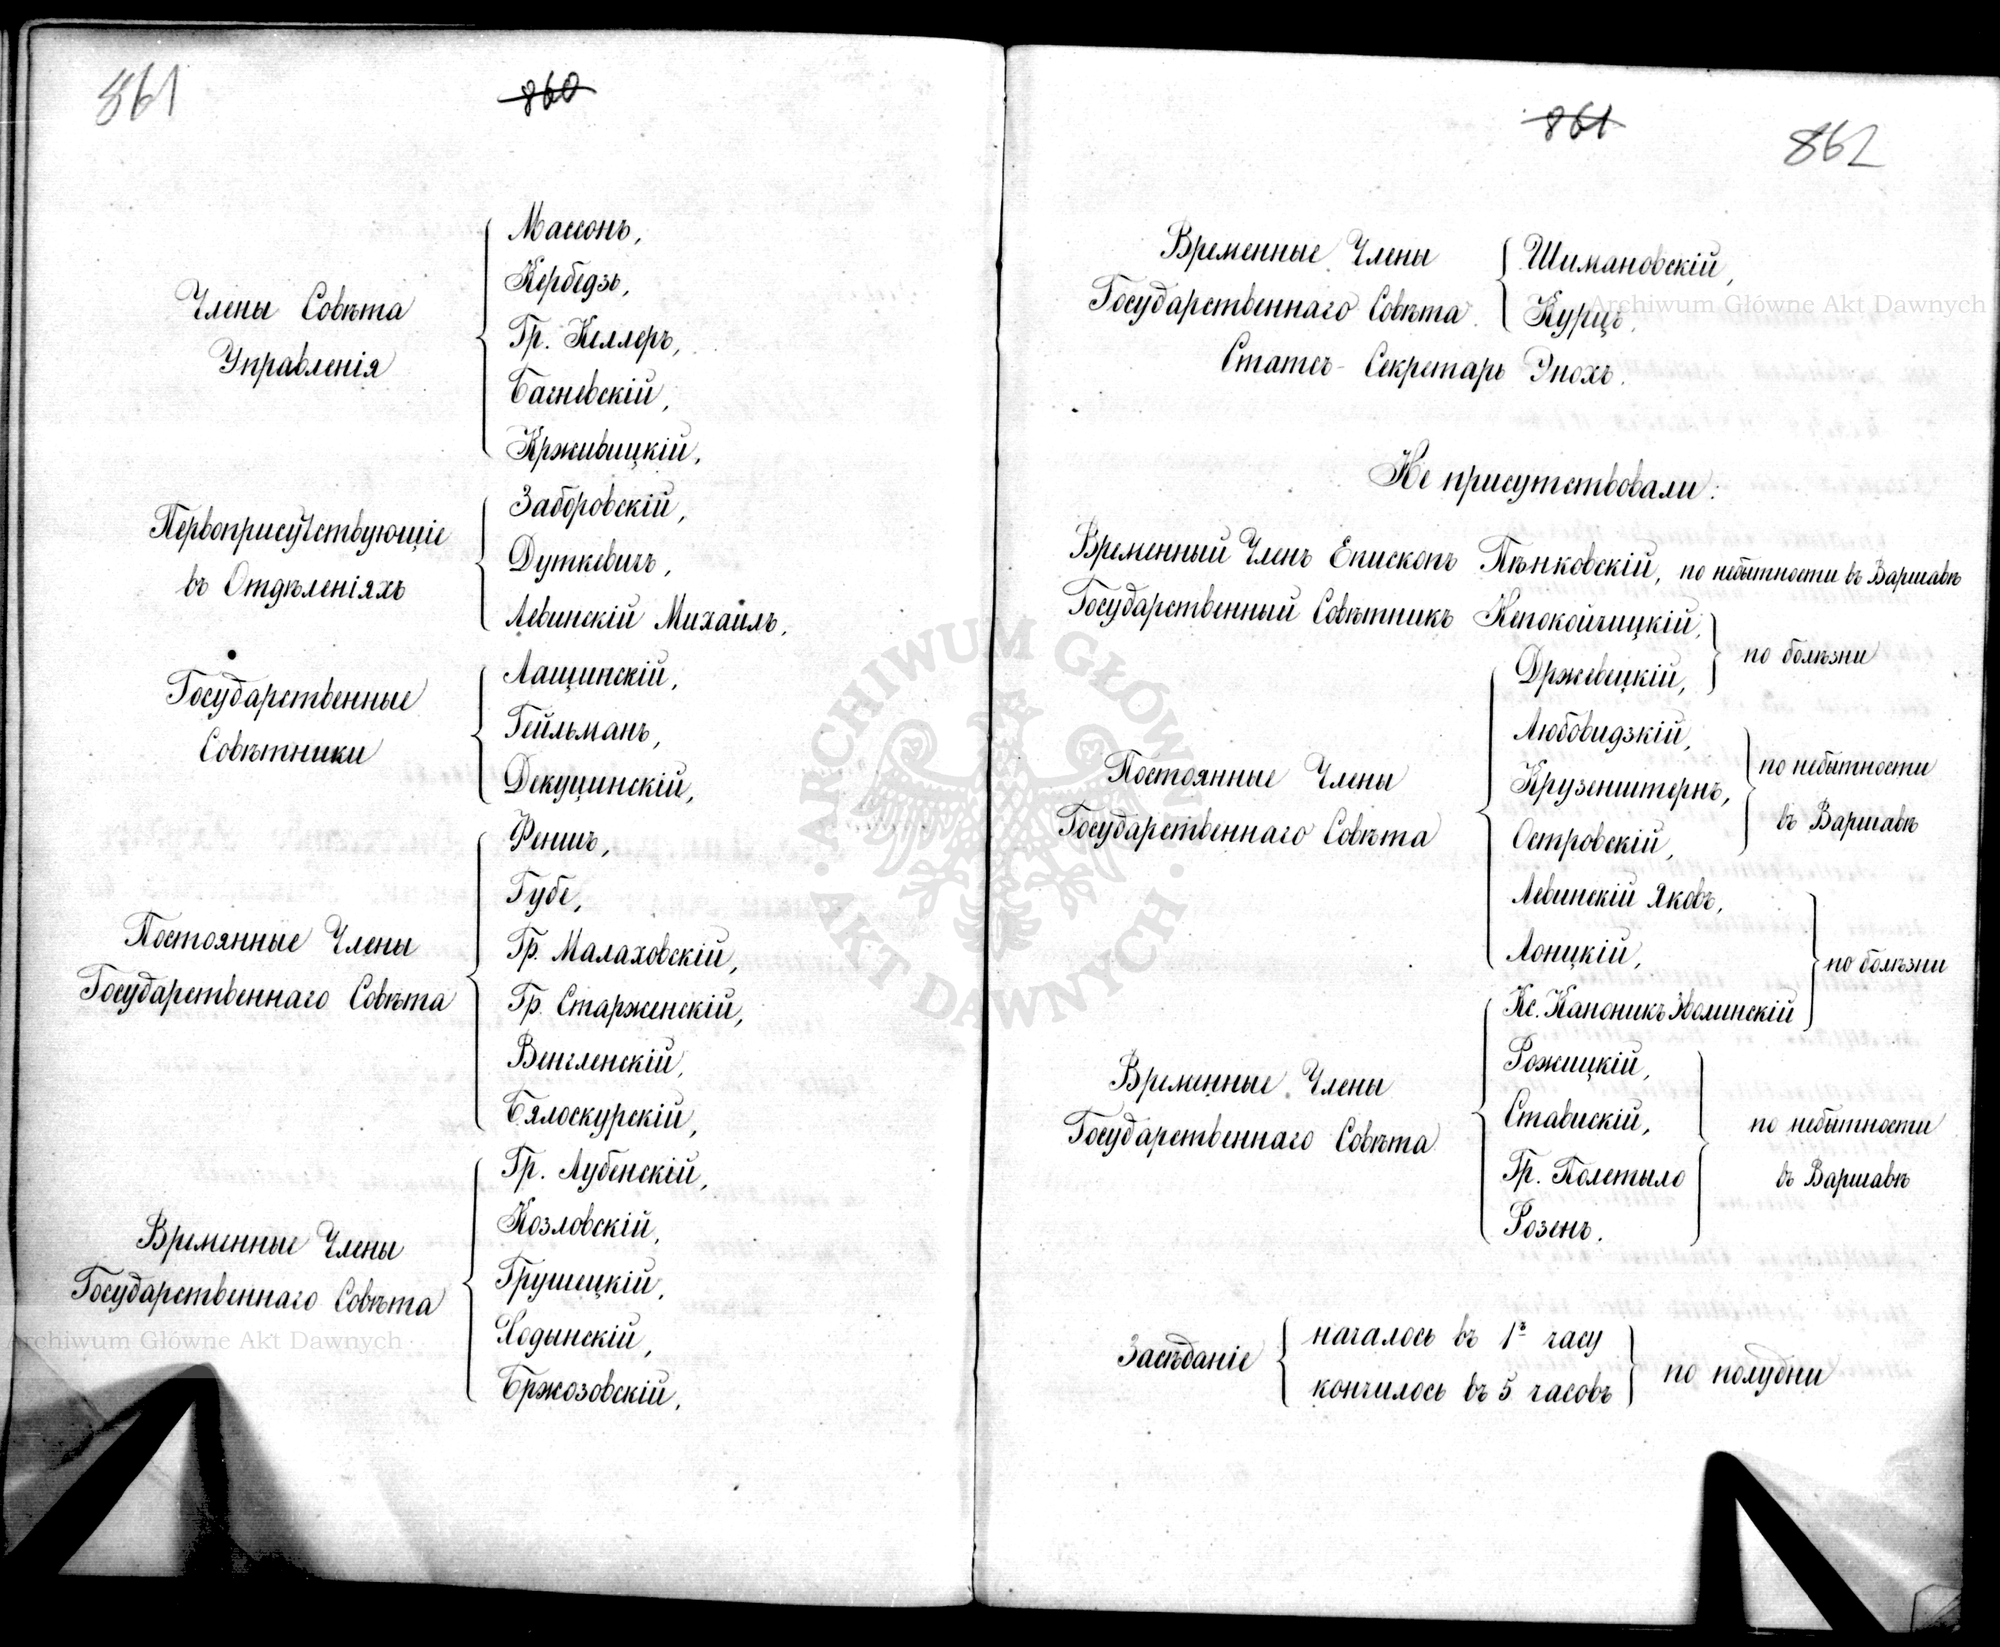 861
860
Члены Совѣта
Управленія
Массонъ,
Кербедзъ,
Гр. Келлеръ,
Багневскій,
Крживицкій,
Первоприсутствующіе
въ Отдѣленіяхъ
Заборовскій,
Дуткевичъ,
Левинскій Михаилъ,
Государственные
Совѣтники
Лащинскій,
Гейльманъ,
Декуцинскій,
Постоянные Члены
Государственнаго Совѣта
Феншъ,
Губе,
Гр. Малаховскій,
Гр. Старженскій,
Венгленскій,
Бялоскурскій,
Временные Члены
Государственнаго Совѣта
Гр. Лубенскій,
Козловскій,
Грушецкій,
Ходынскій,
Бржозовскій,
861
862
Временные Члены
Государственнаго Совѣта
Шимановскій,
Курцъ.
Статсъ-Секретарь Энохъ.
Не присутствовали:
Временный Членъ Епископъ Пѣнковскій, по небытности въ Варшавѣ
Государственный Совѣтникъ Непокойчицкій,
Постоянные Члены
Государственнаго Совѣта
Држевецкій,
по болѣзни
Любовидзкій,
Крузенштернъ,
Островскій,
по небытности
въ Варшавѣ
Левинскій Яковъ,
Лонцкій,
Временные Члены
Государственнаго Совѣта
Кс. Каноникъ Зволинскій
по болѣзни
Рожицкій,
Ставискій,
Гр. Полетыло
Розенъ.
по небытности
въ Варшавѣ
Засѣданіе
началось въ 1ъ часу
кончилось въ 5 часовъ
по полудни
Archiwum Główne Akt Dawnych
Archiwum Główne Akt Dawnych
ARCHIWUM GŁÓWNE
AKT DAWNYCH